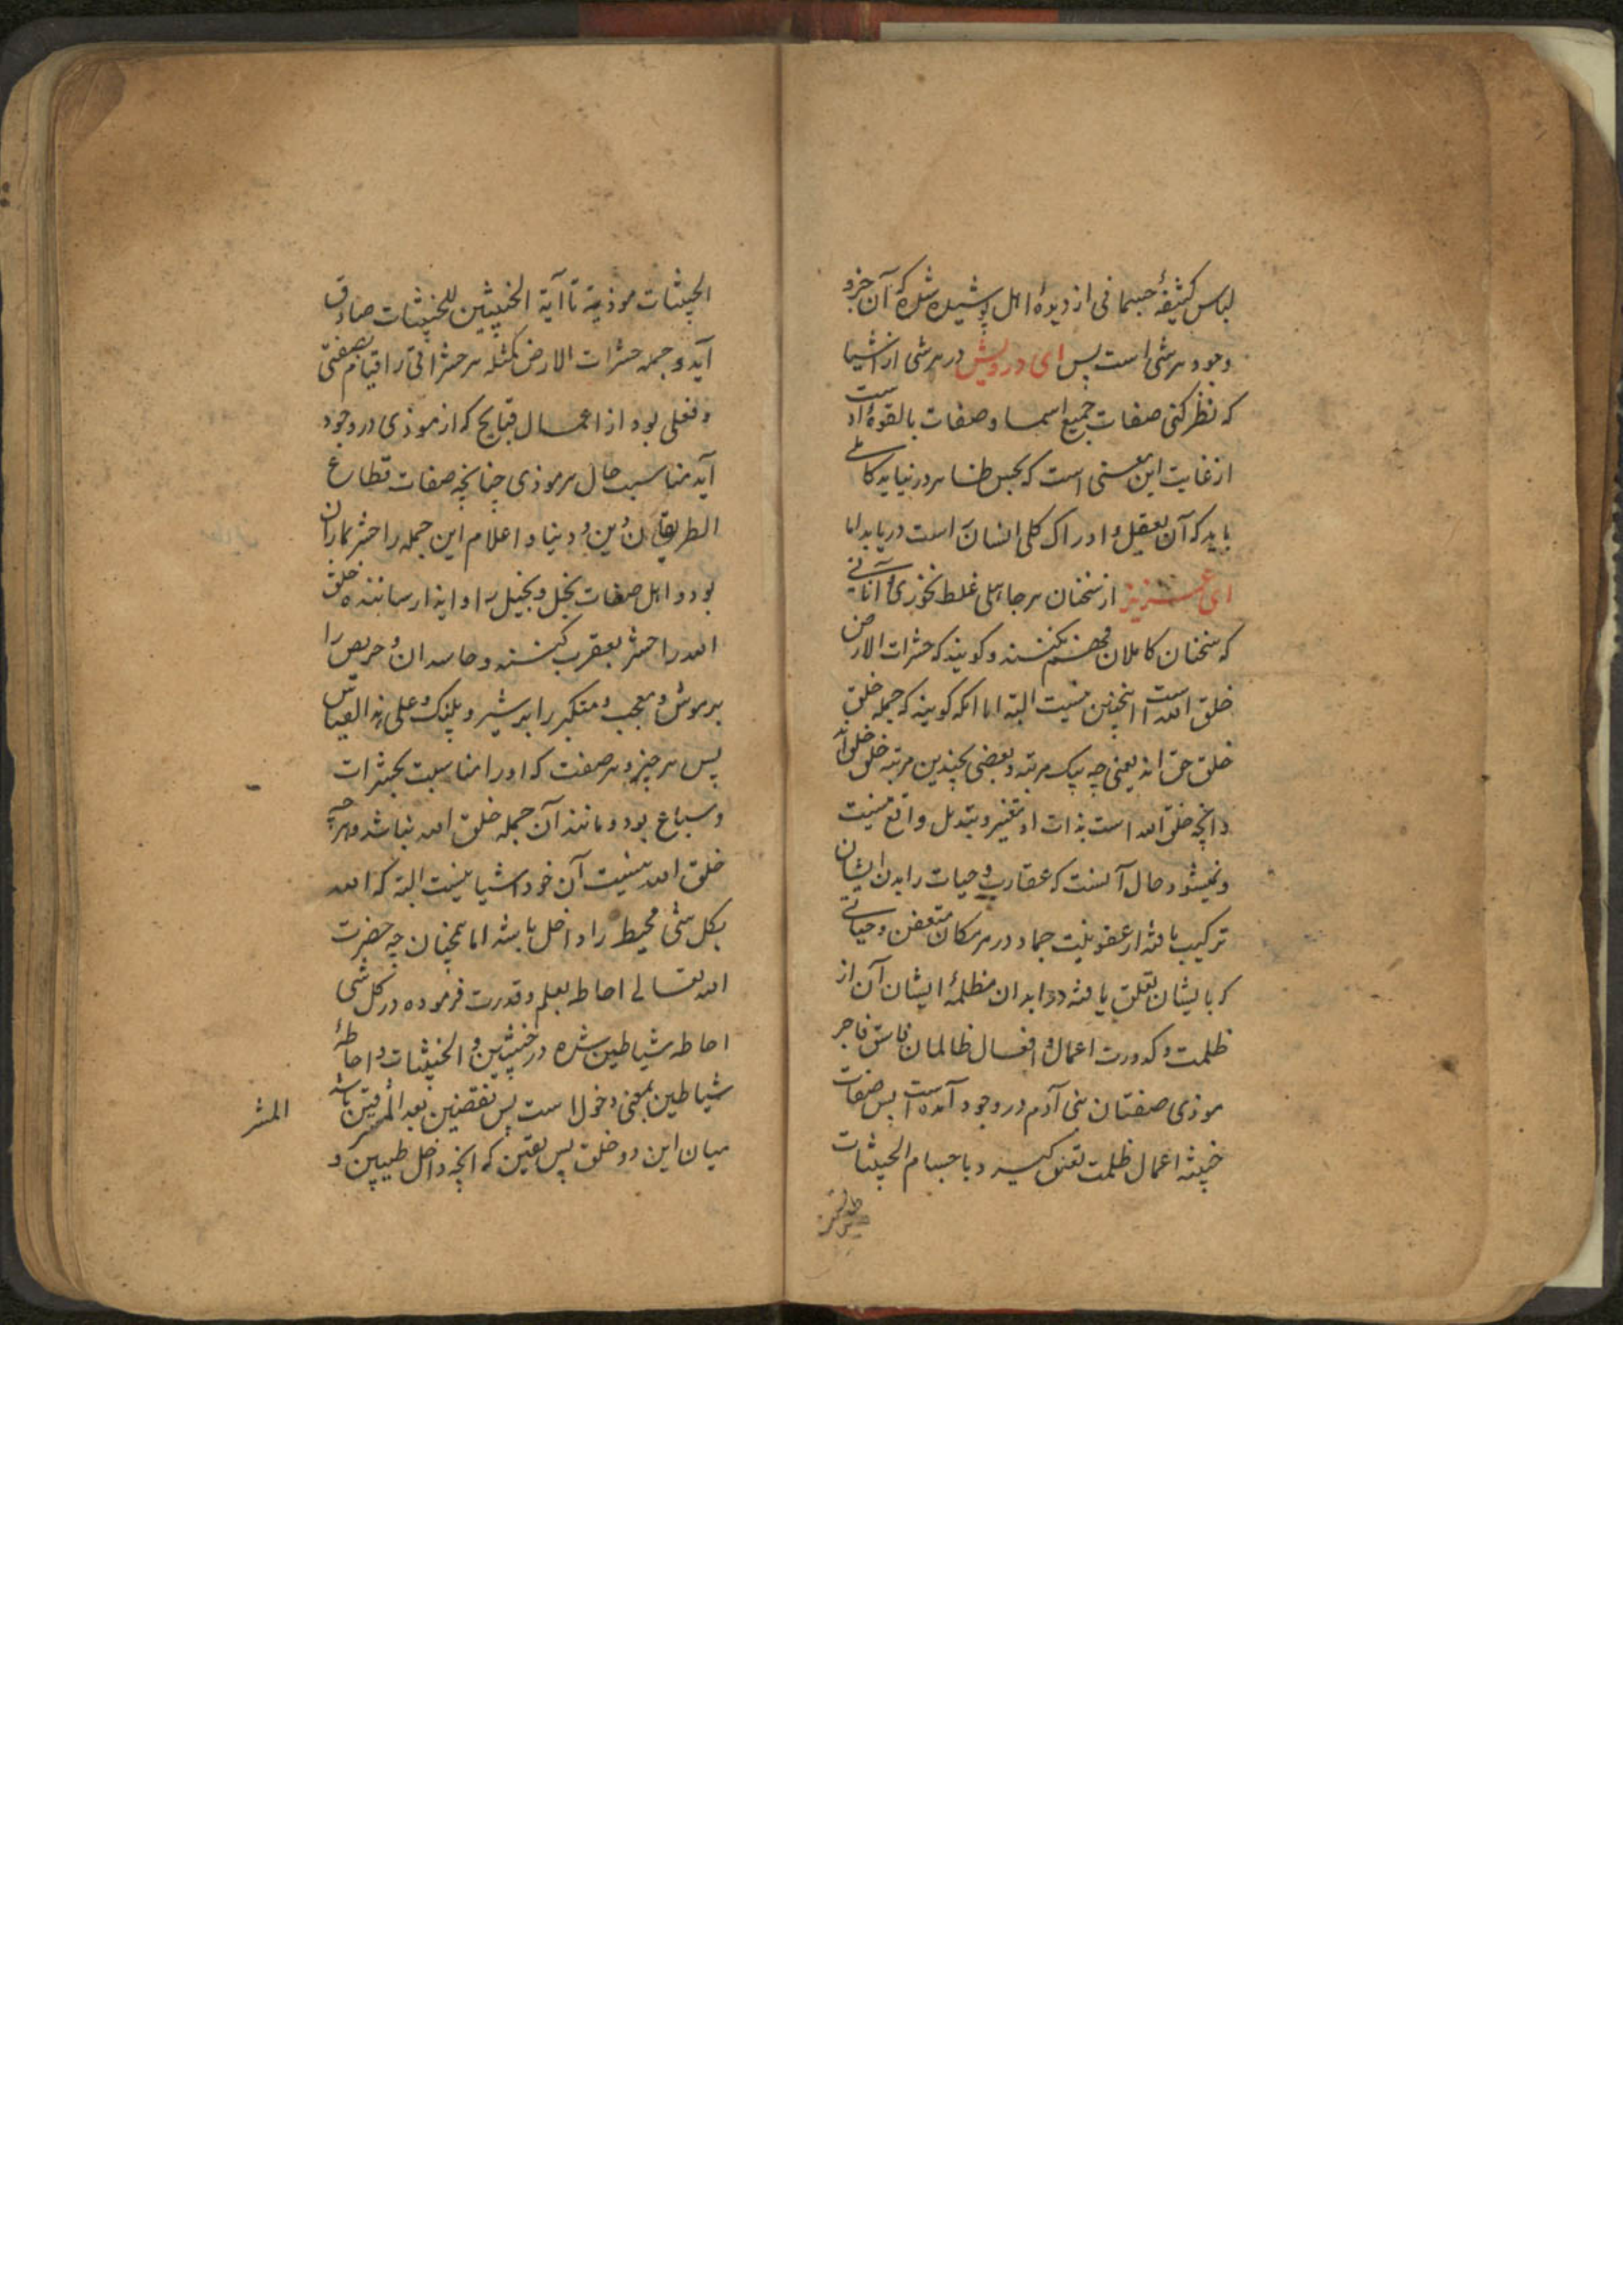 لباس کثیفهٔ جسمانی از دیدهٔ اهل پوشیده شده که آن جزو
وجود هر شی است پس ای درویش در هر شی از اشیا
که نظر کنی صفات جمیع اسما و صفات بالقوهٔ او است
از غایت این معنی است که بحس ظاهر در نیاید کاملی
باید که آن بعقل و ادراک کلی انسان است دریابد اما
ای عزیز از سخنان هر جاهلی غلط نخوری آنانی
که سخنان کاملان فهم نکنند و کویند که حشرات الارض
خلق الله است اینچنین نیست البته اما آنکه کویند که جمله خلق
خلق حق اند یعنی چه بیک مرتبه و بعضی بچندین مرتبه خلق خلق اند
و آنچه خلق الله است بذات او تغییر و تبدیل واقع نیست
و نمیشود و حال آنست که عقارب و حیات را بدن ایشان
ترکیب یافته از عفونیت جماد در هر مکان متعفن و حیاتی
که بایشان تعلق یافته در ابدان مظلمهٔ ایشان آن از
ظلمت و کدورت اعمال و افعال ظالمان فاسق فاجر
موذی صفتان بنی آدم در وجود آمده است پس صفات
خبیثه اعمال ظلمت تعلق کیرد باجسام الخبیثات
الخبیثات موذیة تا آیة الخبیثین للخبیثات صادق
آید و جمله حشرات الارض کمثله هر حشراتی را قیام بصفتی
و فعلی بود از اعمال قبایح که از موذی در وجود
آید مناسبت حال هر موذی چنانچه صفات قطاع
الطریقان دین و دنیا و اعلام این جمله را حشر بماران
بود و اهل صفات بخل و بخیل را و ایذا رساننده خلق
الله را حشر بعقرب کنند و حاسدان و حریص را
بر موش و معجب و متکبر را بر شیر و پلنک و علی هذا القیاس
پس هر چیز و هر صفت که او را مناسبت بحشرات
و سباع بود و مانند آن جمله خلق الله نباشد و هر چه
خلق الله نیست آن خود اشیا نیست البته که الله
بکل شی محیط را داخل باشد اما نچنان چه حضرت
الله تعالی احاطه بعلم و قدرت فرموده در کل شی
احاطه شیاطین شده در خبیثین و الخبیثات و احاطهٔ
شیاطین بمعنی دخول است پس نقضین بعد المشرقین باشد
المشر
میان این دو خلق پس یقین که آنچه داخل طیبین و